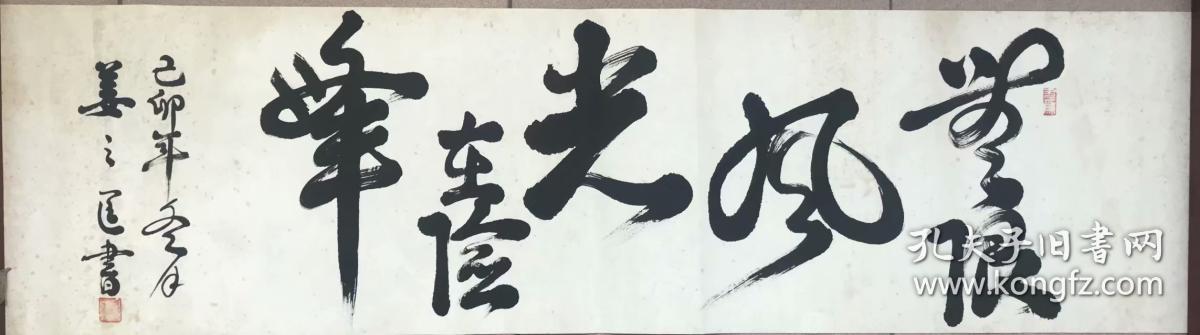 無限風光在險峰
己卯年冬月
姜之匡書
孔夫子旧书网
www.kongfz.com